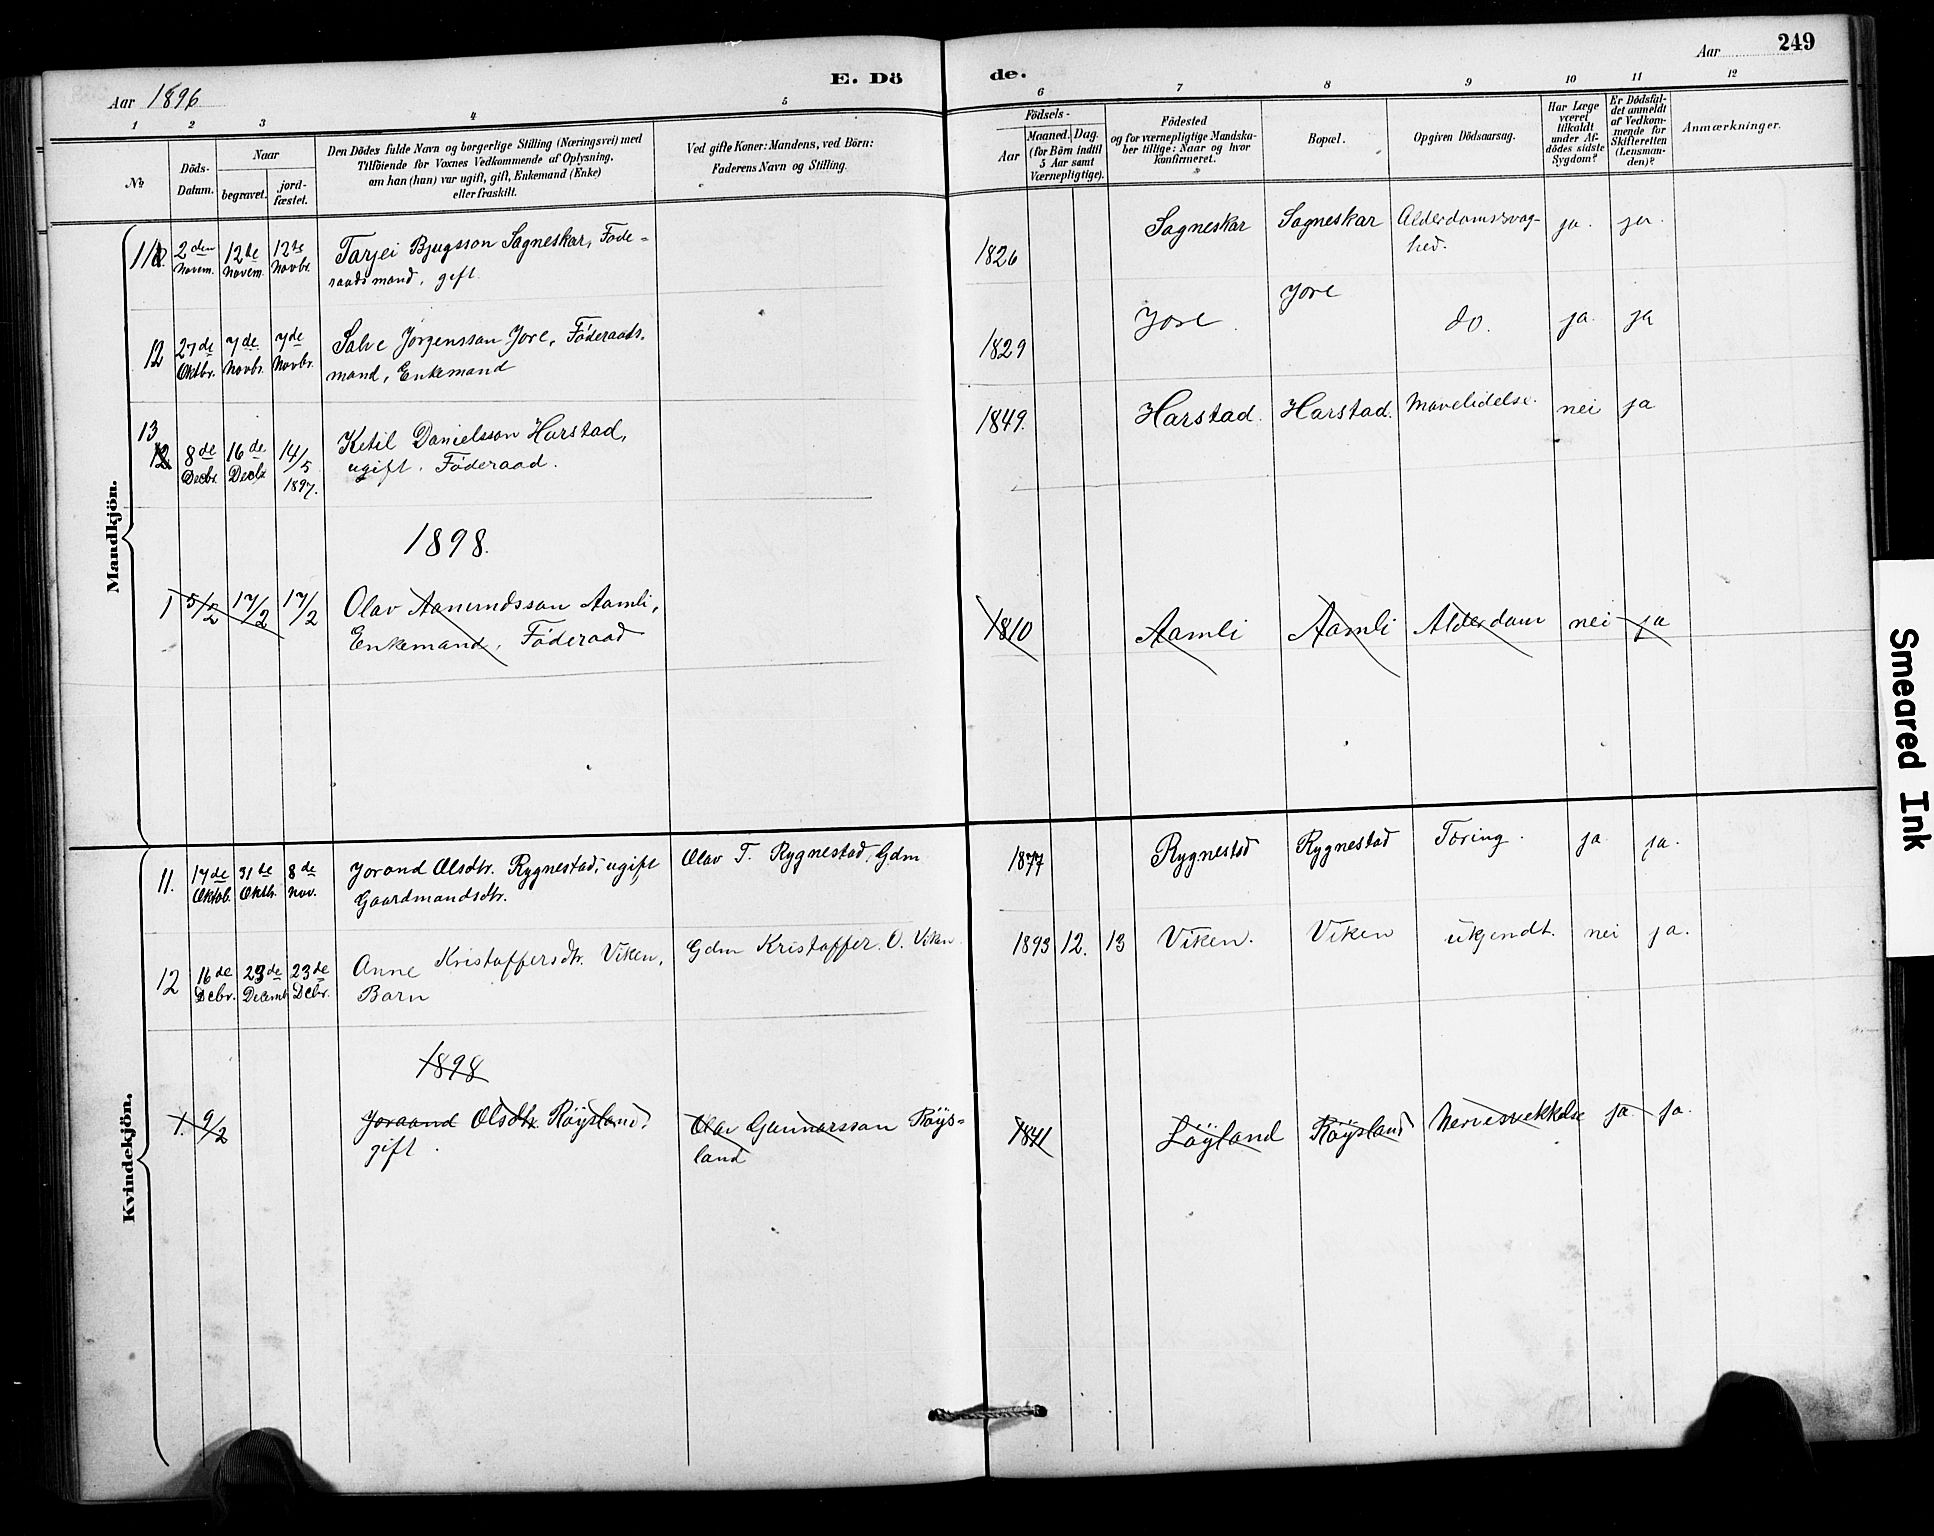 Aar 1896
E. Döde.
Aar
249
1 2 3 4 5 6 7 8 9 10 11 12
No
Döds-Datum.
Naar
begravet.
jordfæstet.
Den Dödes fulde Navn og borgerlige Stilling (Næringsvei) med
Tilföiende for Voxnes Vedkommende af Oplysning,
om han (hun) var ugift, gift, Enkemand (Enke)
eller fraskilt.
Ved gifte Koner: Mandens, ved Börn:
Faderens Navn og Stilling.
Födsels-
Aar
Maaned. Dag.
(for Börn indtil
5 Aar samt
Værnepligtige).
Födested
og for værnepligtige Mandska-
ber tillige: Naar og hvor
konfirmeret.
Bopæl.
Opgiven Dödsaarsag.
Har Læge
været
tilkaldt
under Af-
dödes sidste
Sygdom?
Er Dödsfal-
det anmeldt
af Vedkom-
mende for
Skifteretten
(Lensman-
den)?
Anmærkninger.
Mandkjön.
11 2den Novem. 12te Novem. 12te Novbr. Tarjei Bjugsson Sagneskar, Føde-
raadsmand, gift. 1826 Sagneskar Sagneskar Alderdomssvag-
hed. ja. ja.
12 27de Oktbr. 7de Novbr. 7de Novbr. Salve Jørgensson Jore, Føderaads-
mand, Enkemand 1829 Jore Jore do. ja. ja
13 12 8de Decbr. 16de Decbr 14/5 1897. Ketil Danielsson Harstad,
ugift. Føderaad. 1849. Harstad. Harstad. Mavelidelse. nei ja
1898.
1 5/2 17/2 17/2 Olav Aanundsson Aamli,
Enkemand, Føderaad 1810 Aamli Aamli Alderdom nei ja
Kvindekjön.
11. 17de Oktob. 31te Oktb. 8de Nov. Jorond Olsdtr. Rygnestad, ugift,
Gaardmandsdtr. Olav T. Rygnestad, Gdm 1877 Rygnestad Rygnestad Tæring. ja. ja.
12 16de Dcbr. 23de Decemb 23de Dcbr. Anne Kristoffersdtr. Viken,
Barn Gdm Kristoffer O. Viken 1893 12. 13 Viken. Viken ukjendt. nei ja.
1898
1. 9/2 Joraand Olsdtr. Røysland,
gift. Olav Gunnarsson Røys-
land 1841 Løyland Røysland Nervesvekkelse ja. ja.
Smeared Ink